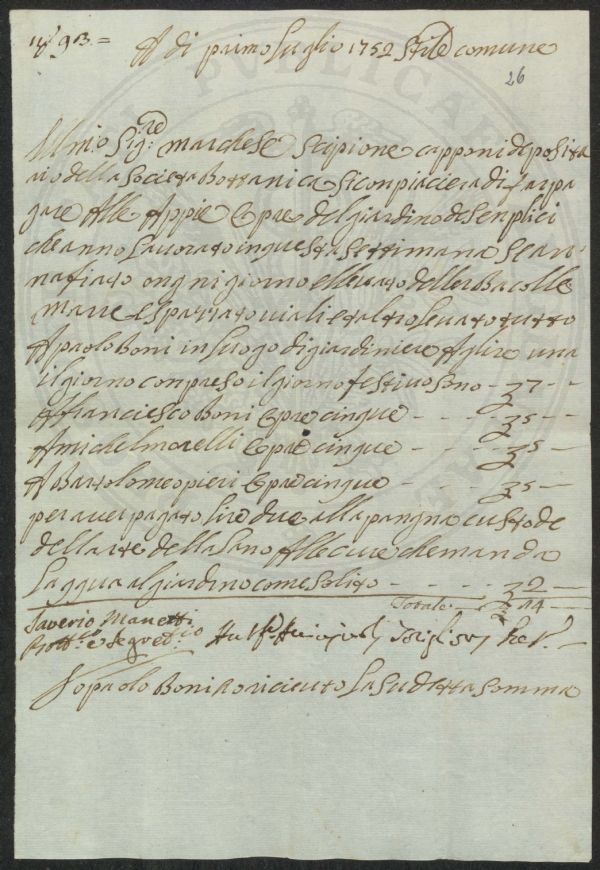 N. 93 =
A di primo Luglio 1752 Stile comune
26
Ill.mo Sig.re marchese Scipione capponi deposita
rio della Societa Bottanica Si conpiaciera di far pa
gare Alle Appie Opre del giardino de Senplici
che anno Lavorato in questa Settimana
nafiato ongni giorno e levato delle Bracolle
Marre e Spazzato viali et altro Levato tutto
A paolo Boni in Luogo di giardiniere A lire una
il giorno conpreso il giorno festivo sono - 7 - -
A franciesco Boni Opre cinque - - - - 5 - -
A michel morelli Opre cinque - - - - 5 - -
A Bartolomeo pieri Opre cinque - - - - 5 - -
per aver pagato lire due alla pangnia custode
dell arte della Lana Alle cure che manda
Laqqua al giardino come Solito - - - - 2 -
Totale
Saverio Manetti
Prott.e e Segret.rio
Io paolo Boni o riceuto La Sudetta Somma